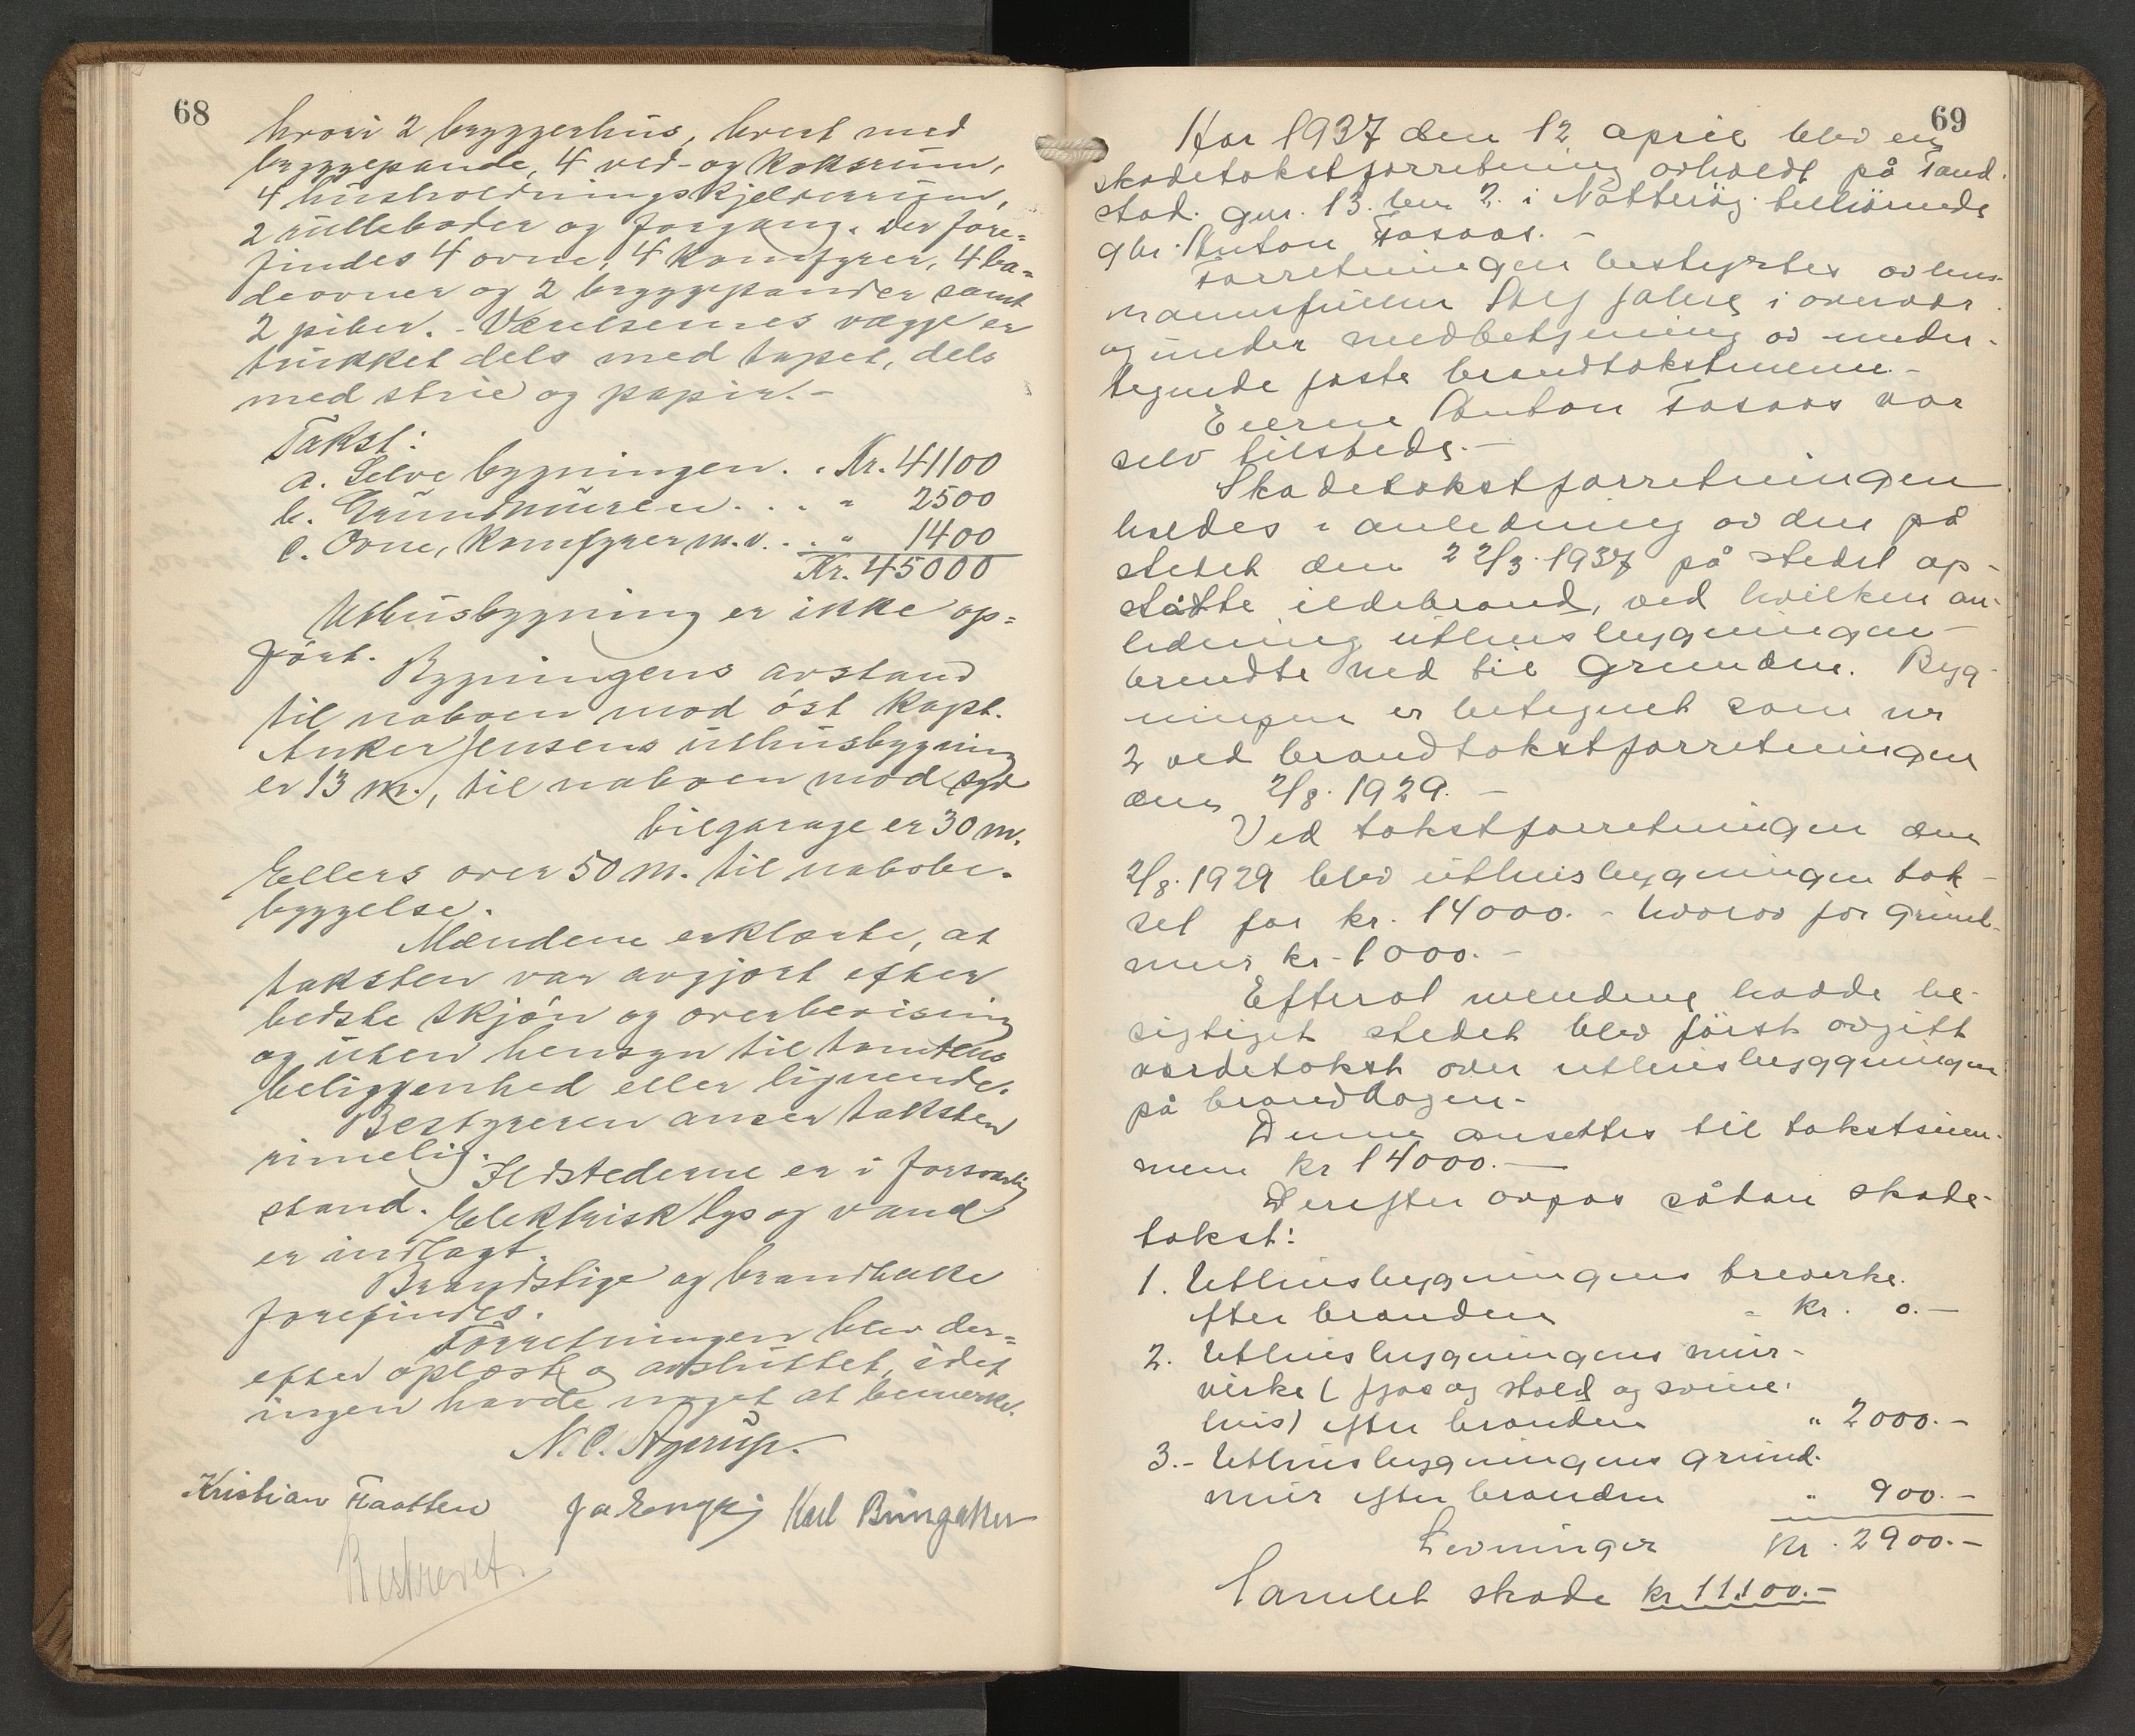 68
hvori 2 bryggerhus, hvert med
bryggepande, 4 ved- og koksrum,
4 husholdningskjelderrum,
2 rulleboder og forgang. Der fore=
findes 4 ovne, 4 komfyrer, 4 ba=
deovner og 2 bryggepander samt
2 piber. - Værelsernes vægge er
trukket dels med tapet, dels
med strie og papir. -
Takst:
a. Selve bygningen. . Kr. 41100
b. Grundmuren. . . . " 2500
c. Ovne, komfyrer m.v. . . " 1400
Kr. 45000
Uthusbygning er ikke op=
ført.
Bygningens avstand
til naboen mod øst kapt.
Anker Jensens uthusbygning
er 13 m., til naboen mod syd
bilgarage er 30 m.
Ellers over 50 m. til nabobe-
byggelse.
Mændene erklærte, at
taksten var avgjort efter
bedste skjøn og overbevisning
og uten hensyn til tomtens
beliggenhed eller lignende.
Bestyreren anser taksten
rimelig.
Ildstederne er i forsvarlig
stand. Elektrisk lys og vand
er indlagt.
Brandstige og brandhake
forefindes.
Forretningen blev der=
efter oplæst og avsluttet, idet
ingen havde noget at bemerke.
N. C. Agerup.
Kristian Haatten Karl Brungakker
Beskrevet.
69
Aar 1937 den 12 april blev en
skadetakstforretning avholdt på Tand-
stad. gnr. 13. bnr 2. i Nøtterøy tilhørende
gbr. Anton Fosaas. -
Forretningen bestyrtes av lens-
mannsfullm i overvær
og under medbetjening av under-
tegnede faste brandtakstmenn. -
Eieren Anton Fosaas var
selv tilstede. -
Skadetakstforretningen
holdes i anledning av den på
stedet den 22/3. 1937 på stedet op-
ståtte ildebrand, ved hvilken an-
ledning uthusbygningen
brendte ned til grunden. Byg-
ningen er betegnet som nr
2 ved brandtakstforretningen
den 2/8. 1929. -
Ved takstforretningen den
2/8. 1929 blev uthusbygningen tak-
sert for kr. 14000. - hvorav for grund-
mur kr. 1000. -
Efterat mendene hadde be-
sigtiget stedet blev først avgitt
verditakst over uthusbyggningen
på branddagen. -
Denne ansettes til takstsum-
men kr 14000. -
Derefter avgas sådan skade-
takst:
1. Uthusbygningens treverke
efter branden " kr. 0. -
2. Uthusbygningens mur-
virke (fjøs og stald og svine-
hus) efter branden " 2000. -
3. - Uthusbygningens grund-
mur efter branden " 900. -
Levninger Kr. 2900. -
Samlet skade kr 11.100. -